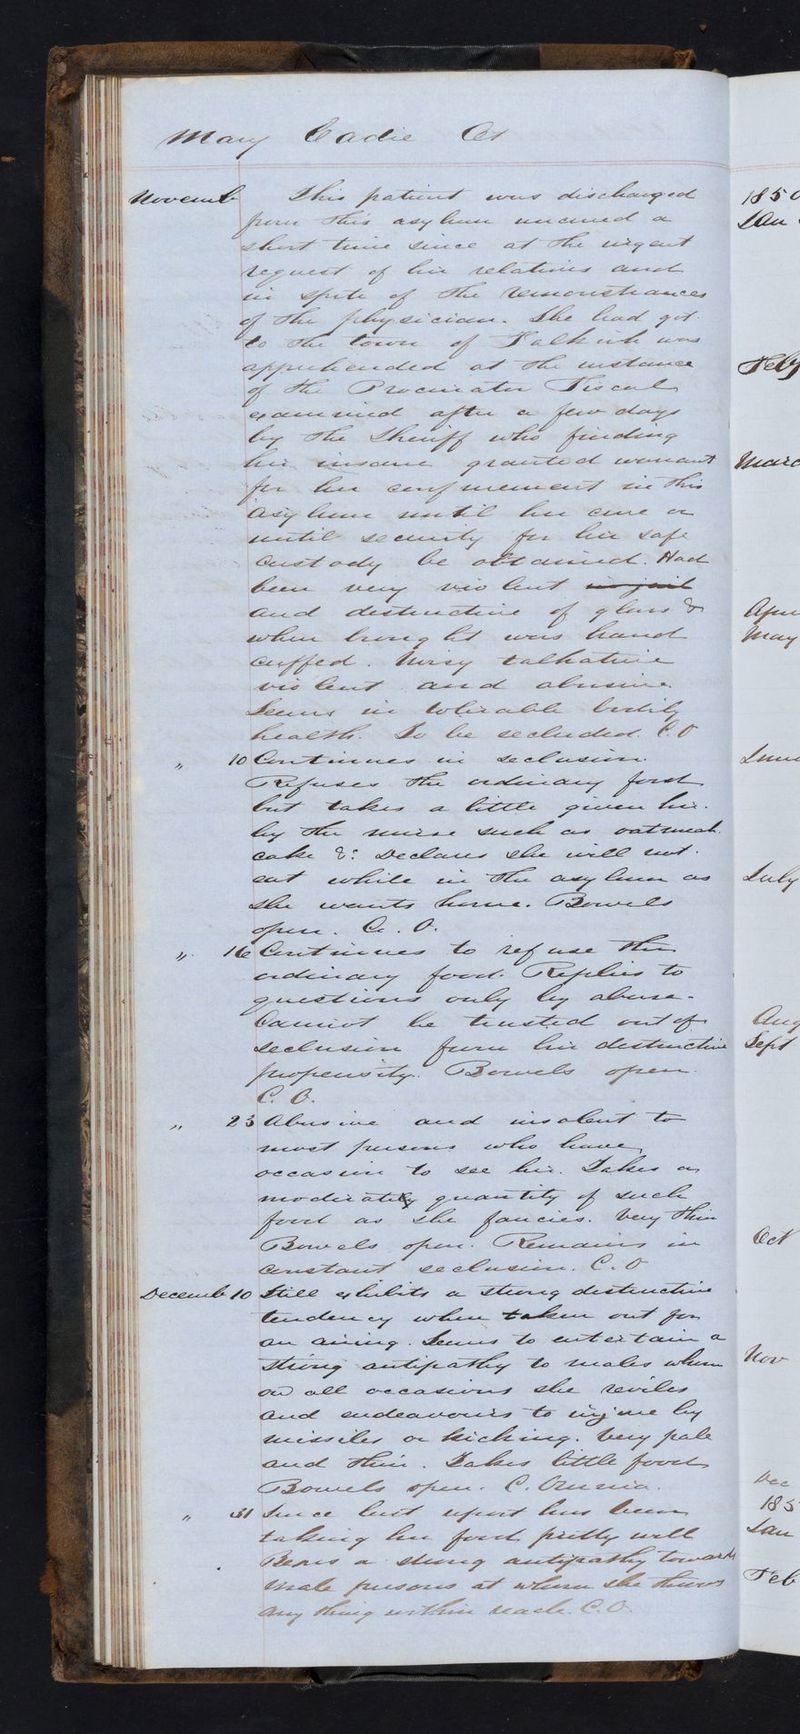 Mary Cadie
Novemb This patient was discharged
from this asylum uncured a
short time since at the urgent
request of her relations and
in spite of the remonstrances
of the physician. She had got
to the town of Falkirk was
apprehended at the instance
of the Procurator Fiscal
examined after a few days
by the Sheriff who finding
her insane granted warrant
for her confinement in this
asylum until her cure or
until security for her safe
custody be obtained. Had
been very violent in jail
and destructive of glass &
when brought was hand
cuffed. Noisy talkative
violent and abusive
Seems in tolerable bodily
health. To be secluded. C.O
" 10 Continues in seclusion.
Refuses the ordinary food
but takes a little given her
by the nurse such as oatmeal
cake &c Declares she will not
eat while in the asylum as
she wants home. Bowels
open. C. O.
" 16 Continues to refuse the
ordinary food. Replies to
questions only by abuse.
Cannot be trusted out of
seclusion from her destructive
propensity. Bowels open
C. O.
" 23 Abusive and insolent to
most persons who have
occasion to see her. Takes a
moderate quantity of such
food as she fancies. Very thin
Bowels open. Remains in
constant seclusion. C. O
Decemb 10 Still exhibits a strong destructive
tendency when taken out for
an airing. Seems to entertain a
strong antipathy to males whom
on all occasions she reviles
and endeavours to injure by
missiles or kicking. Very pale
and thin. Takes little food
Bowels open. C. Omnia.
" 31 Since last report has been
taking her food pretty well
Bears a strong antipathy towards
male persons at whom she throws
any thing within reach. C.O.
185
Jan
Feby
Marc
Apri
May
June
July
Aug
Sept
Oct
Nov
Dec
185
Jan
Feb